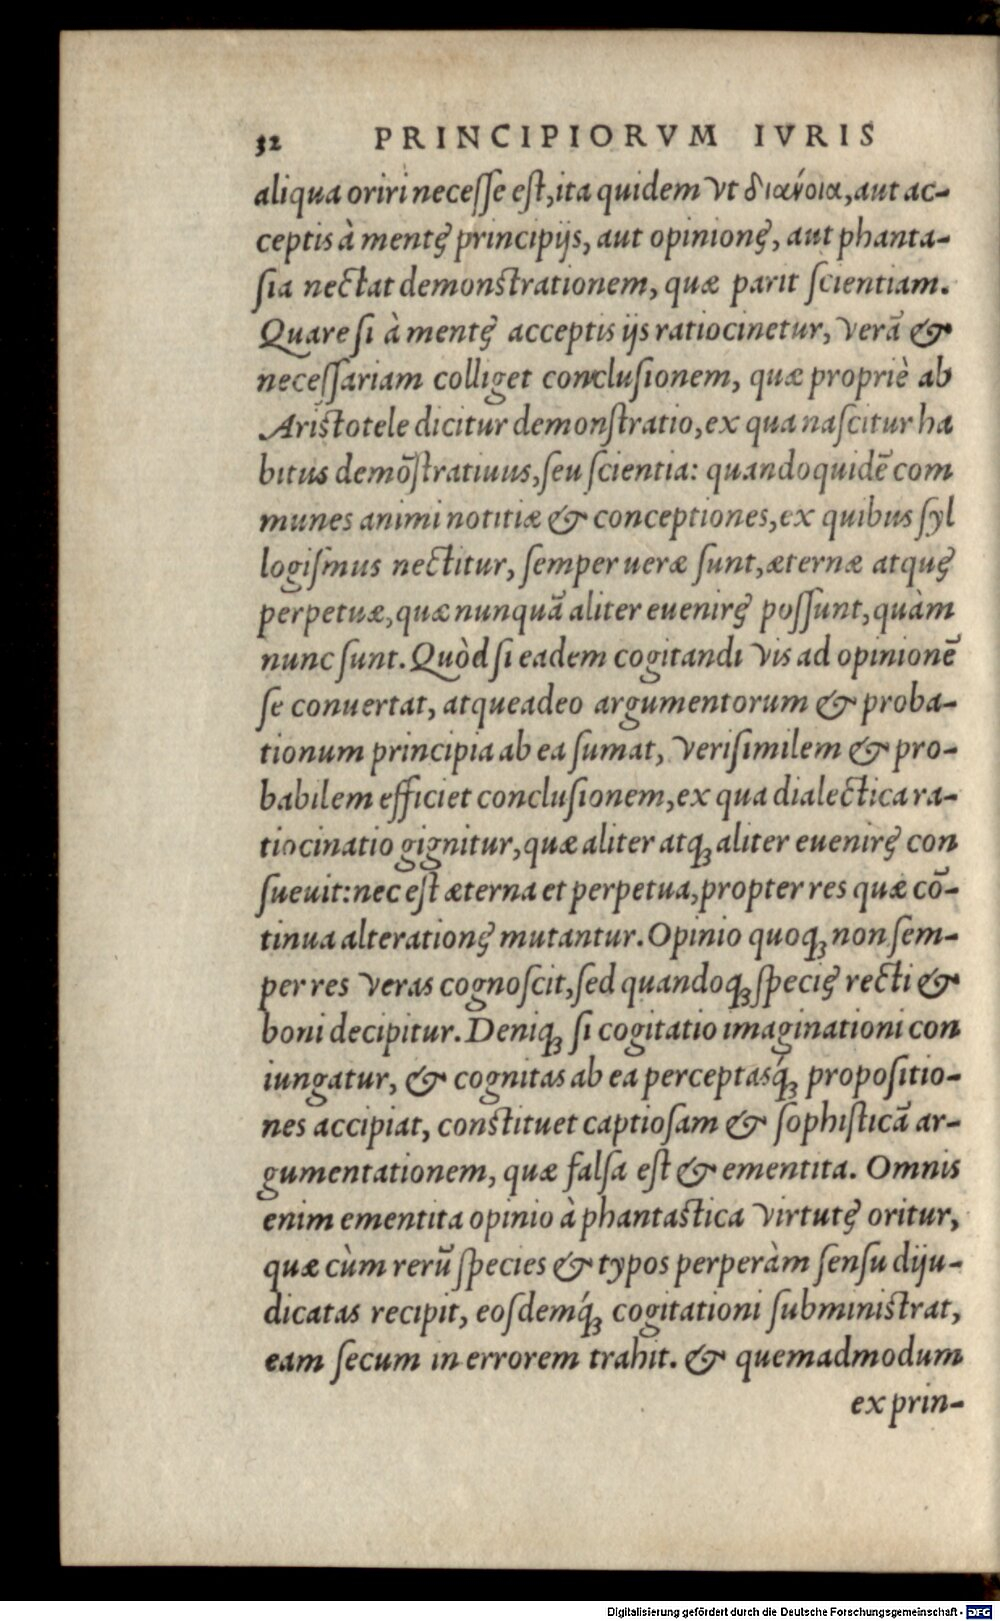 32 PRINCIPIORVM IVRIS
aliqua oriri neceſſe eſt, ita quidem vt διανόια, aut ac-
ceptis à mente principijs, aut opinione, aut phanta-
ſia nectat demonſtrationem, quæ parit ſcientiam.
Quare ſi à mente acceptis ijs ratiocinetur, verā &
neceſſariam colliget concluſionem, quæ propriè ab
Ariſtotele dicitur demonſtratio, ex qua naſcitur ha
bitus demōſtratiuus, ſeu ſcientia: quandoquidē com
munes animi notitiæ & conceptiones, ex quibus ſyl
logiſmus nectitur, ſemper ueræ ſunt, æternæ atque
perpetuæ, quæ nunquā aliter euenire poſſunt, quàm
nunc ſunt. Quòd ſi eadem cogitandi vis ad opinionē
ſe conuertat, atqueadeo argumentorum & proba-
tionum principia ab ea ſumat, veriſimilem & pro-
babilem efficiet concluſionem, ex qua dialectica ra-
tiocinatio gignitur, quæ aliter atqꝫ aliter euenire con
ſueuit: nec eſt æterna et perpetua, propter res quæ cō-
tinua alteratione mutantur. Opinio quoqꝫ non ſem-
per res veras cognoſcit, ſed quandoqꝫ ſpecie recti &
boni decipitur. Deniqꝫ ſi cogitatio imaginationi con
iungatur, & cognitas ab ea perceptasq́ꝫ propoſitio-
nes accipiat, conſtituet captioſam & ſophiſticā ar-
gumentationem, quæ falſa eſt & ementita. Omnis
enim ementita opinio à phantaſtica virtute oritur,
quæ cùm rerū ſpecies & typos perperàm ſenſu diju-
dicatas recipit, eoſdemq́ꝫ cogitationi ſubminiſtrat,
eam ſecum in errorem trahit. & quemadmodum
ex prin-
Digitalisierung gefördert durch die Deutsche Forschungsgemeinschaft - DFG